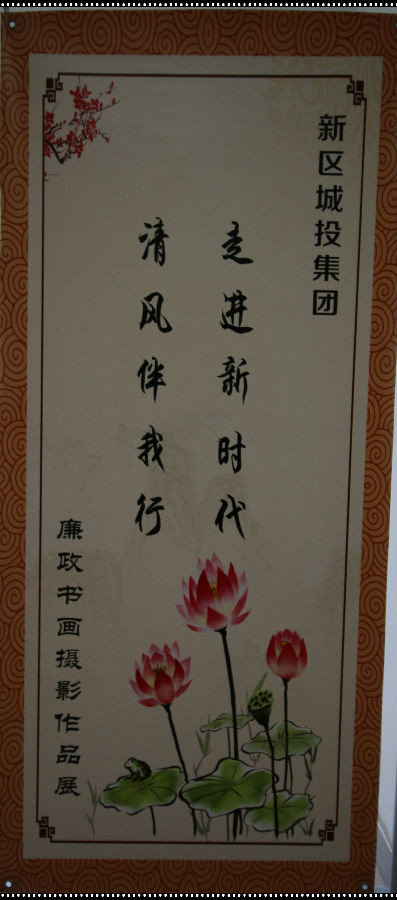 新区城投集团
走进新时代
清风伴我行
廉政书画摄影作品展